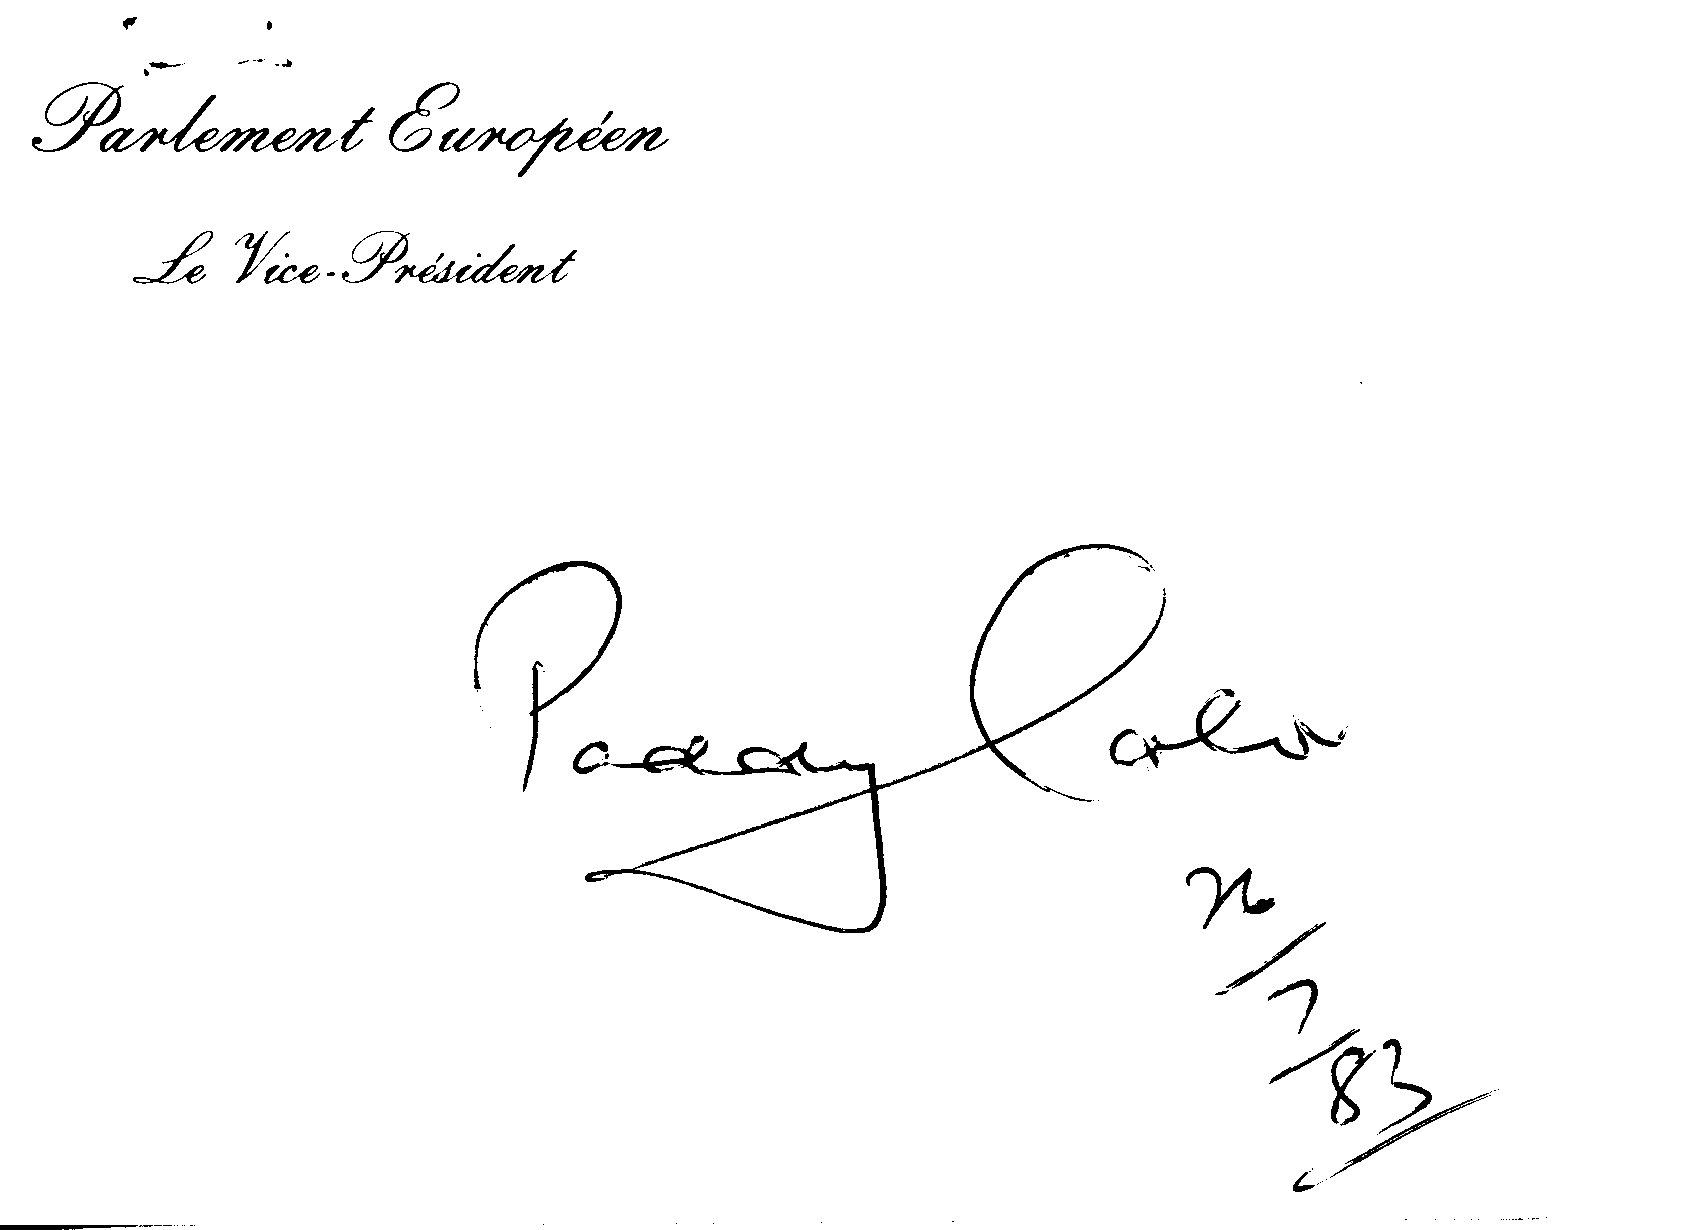 Parlement Européen
Le Vice-Président
Paddy Lalor
26/7/83